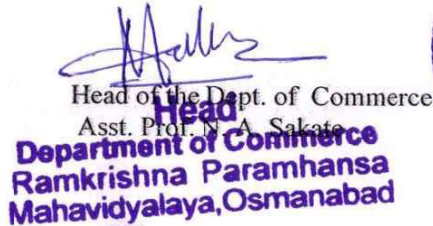 Head of the Dept. of Commerce
Head
Asst. Prof. N. A. Sakate
Department of Commerce
Ramkrishna Paramhansa
Mahavidyalaya,Osmanabad